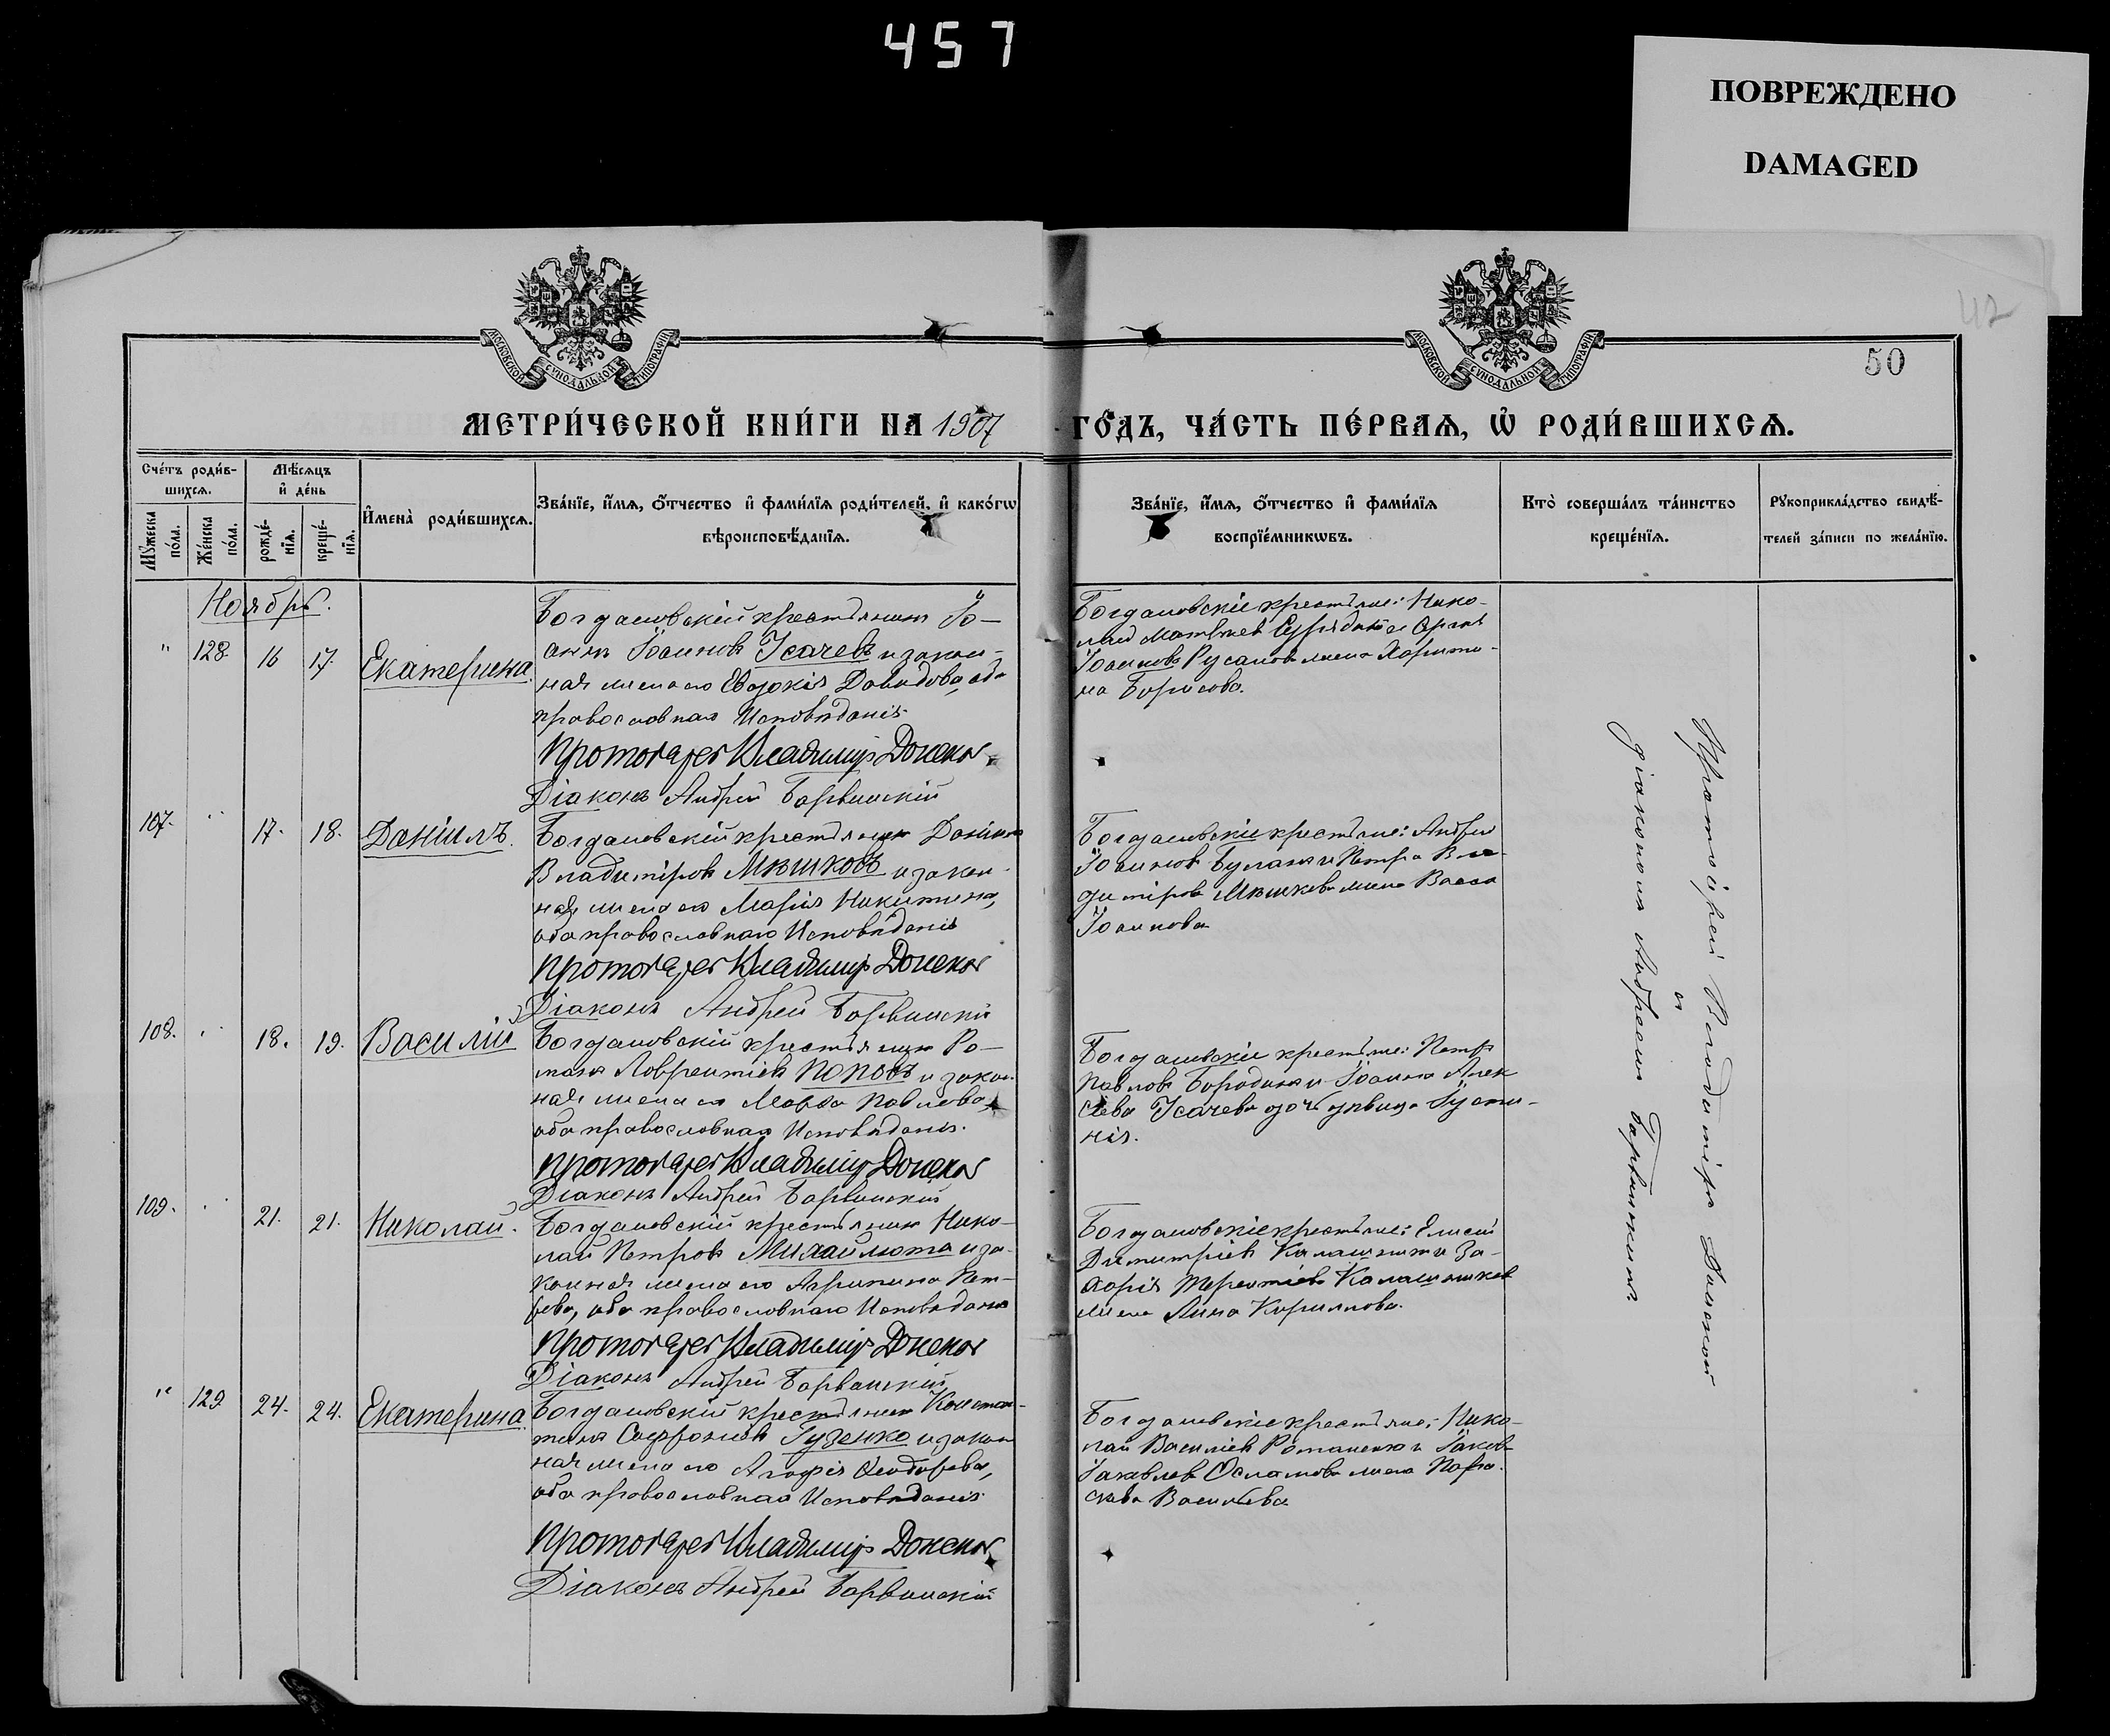 457
ПОВРЕЖДЕНО
DAMAGED
42
50
МОСКОВСКОЙ СѴНОДАЛЬНОЙ ТИПОГРАФІИ
МОСКОВСКОЙ СѴНОДАЛЬНОЙ ТИПОГРАФІИ
МЕТРИ́ЧЕСКОЙ КНИ́ГИ НА 1907 ГО́ДЪ, ЧА́СТЬ ПЕ́РВАѦ, Ѡ҆ РОДИ́ВШИХСѦ.
Сче́тъ роди́в-
шихсѧ.
Мꙋ́жеска по́ла.
Же́нска по́ла.
Мѣ́сѧцъ
и҆ де́нь
рожде́-нїѧ.
креще́-нїѧ.
И҆мена̀ роди́вшихсѧ.
Зва́нїе, и҆́мѧ, ѻ҆́тчество и҆ фами́лїѧ роди́телей, и҆ како́гѡ
вѣроисповѣ́данїѧ.
Зва́нїе, и҆́мѧ, ѻ҆́тчество и҆ фами́лїѧ
воспрїе́мникѡвъ.
Кто̀ соверша́лъ та́инство
креще́нїѧ.
Рꙋкоприкла́дство свидѣ́-
телей за́писи по жела́нїю.
Ноябрь.
" 128. 16 17. Екатерина
Богдановскій крестьянинъ Іо-
аннъ Іоанновъ Усачевъ и закон-
ная жена его Евдокія Давидова, оба
православнаго Исповѣданія.
Протоіерей Владимір Донской
Діаконъ Андрей Барвинскій
Богдановскіе крестьяне: Нико-
лай Матвѣев
Іоаннова Русанова жена Харити-
на Борисова.
107. " 17. 18. Даніилъ.
Богдановскій крестьянинъ Даніилъ
Владиміровъ Мѣшковъ и закон-
ная жена его Марія Никитина,
оба православнаго Исповѣданія
Протоіерей Владимір Донской
Діаконъ Андрей Барвинскій
Богдановскіе крестьяне: Андрей
Іоанновъ и Петра Вла-
димірова Мѣшкова жена Васса
Іоаннова
108. " 18. 19. Василій
Богдановскій крестьянинъ Ро-
манъ Лаврентіевъ Поповъ и закон-
ная жена его Марѳа Павлова,
оба православнаго Исповѣданія.
Протоіерей Владимір Донской
Діаконъ Андрей Барвинскій
Богдановскіе крестьяне: Петръ
Павловъ Бородинъ и Іоанна Алек
сѣева Усачева дочь дѣвица Іусти-
нія.
109. " 21. 21. Николай.
Богдановскій крестьянинъ Нико-
лай Петровъ Михайлюта и за-
конная жена его Агрипина Пет-
рова, оба православнаго Исповѣданія
Протоіерей Владимір Донской
Діаконъ Андрей Барвинскій
Богдановскіе крестьяне: Елисей
Димитріевъ и За-
харія Терентіева Калашникова
жена Анна Кириллова.
" 129 24. 24. Екатерина
Богдановскій крестьянинъ Констан-
тинъ Софроніевъ Гузенко и закон
ная жена его Агафія Ѳеодорова,
оба православнаго Исповѣданія
Протоіерей Владимір Донской
Діаконъ Андрей Барвинскій
Богдановскіе крестьяне: Нико-
лай Василіевъ Романенко и Іакова
жена Пара-
скева Васильева
Протоіерей Владиміръ Донской
съ
діакономъ Андреемъ Барвинскимъ